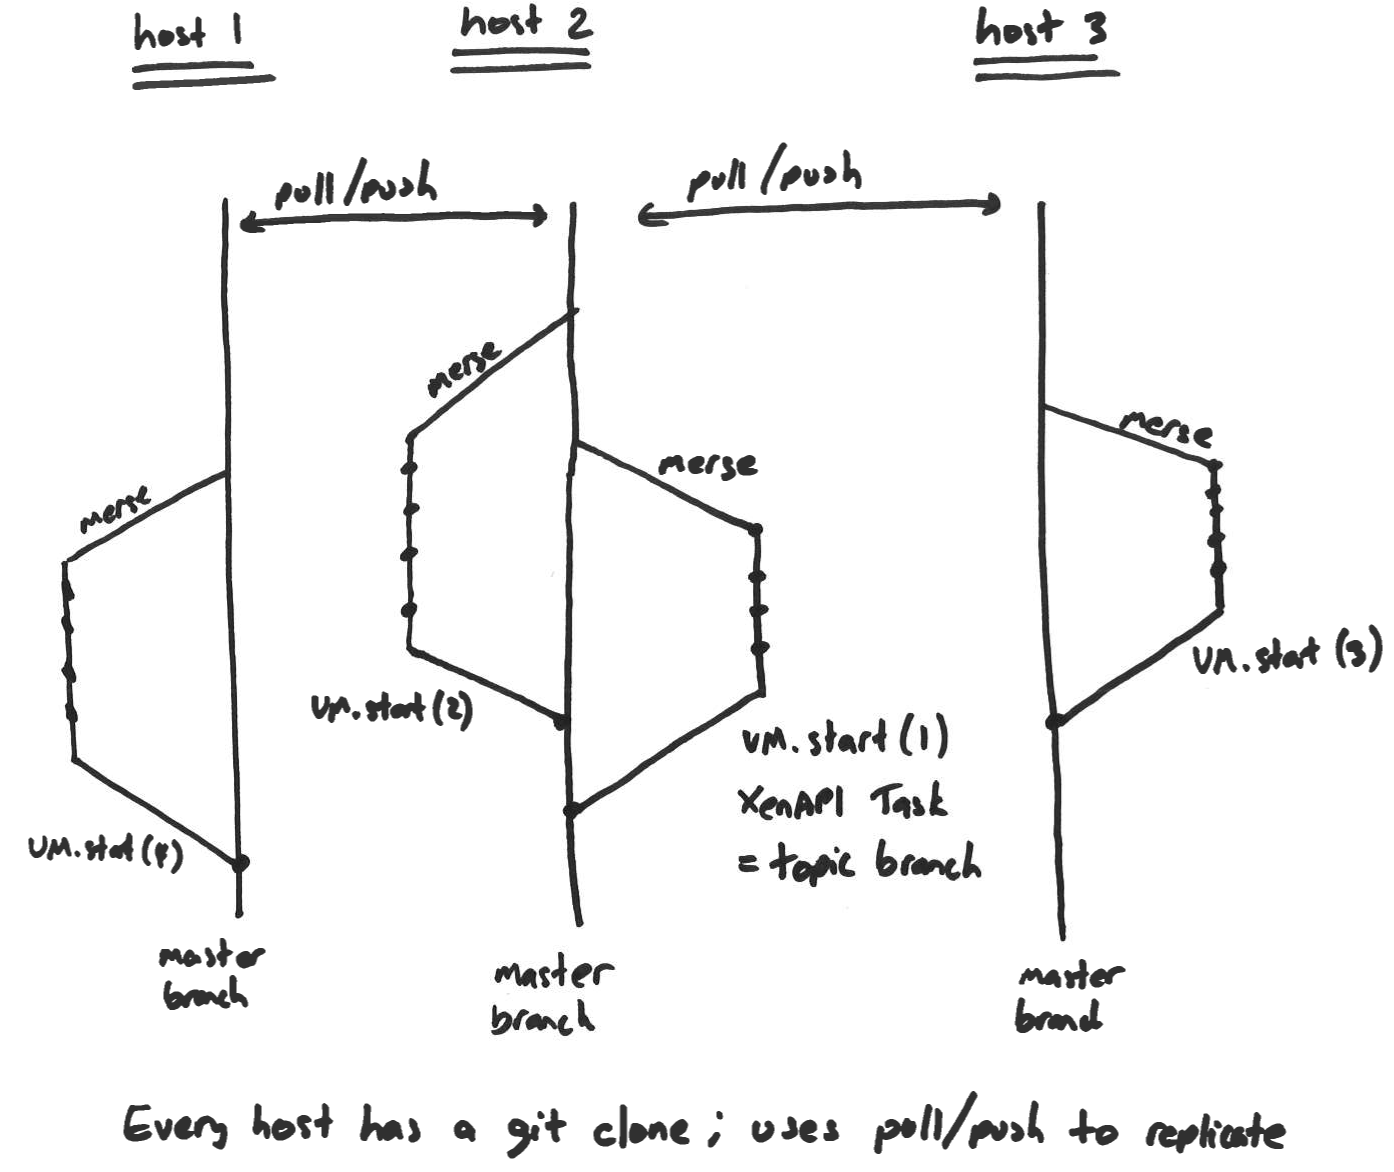 host 1
host 2
host 3
pull/push
pull/push
merge
merge
merge
merge
VM.start (3)
VM.start (2)
VM.start (1)
XenAPI Task
= topic branch
VM.stat (4)
master
branch
master
branch
master
branch
Every host has a git clone; uses pull/push to replicate